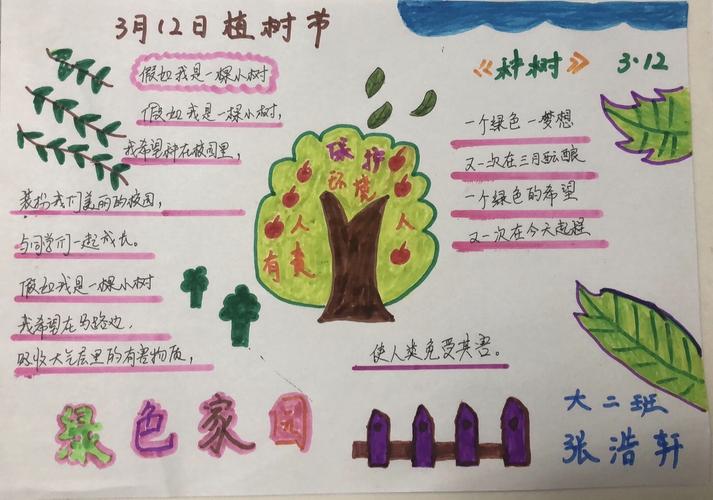 3月12日植树节
假如我是一棵小树
假如我是一棵小树,
我希望种在校园里,
装扮我们美丽的校园,
与同学们一起成长。
假如我是一棵小树
我希望在马路边,
吸收大气层里的有害物质,
使人类免受其害。
保护
环境
人人
有责
《种树》 3·12
一个绿色 一梦想
又一次在三月酝酿
一个绿色的希望
又一次在今天起程
绿色家园
大二班
张浩轩